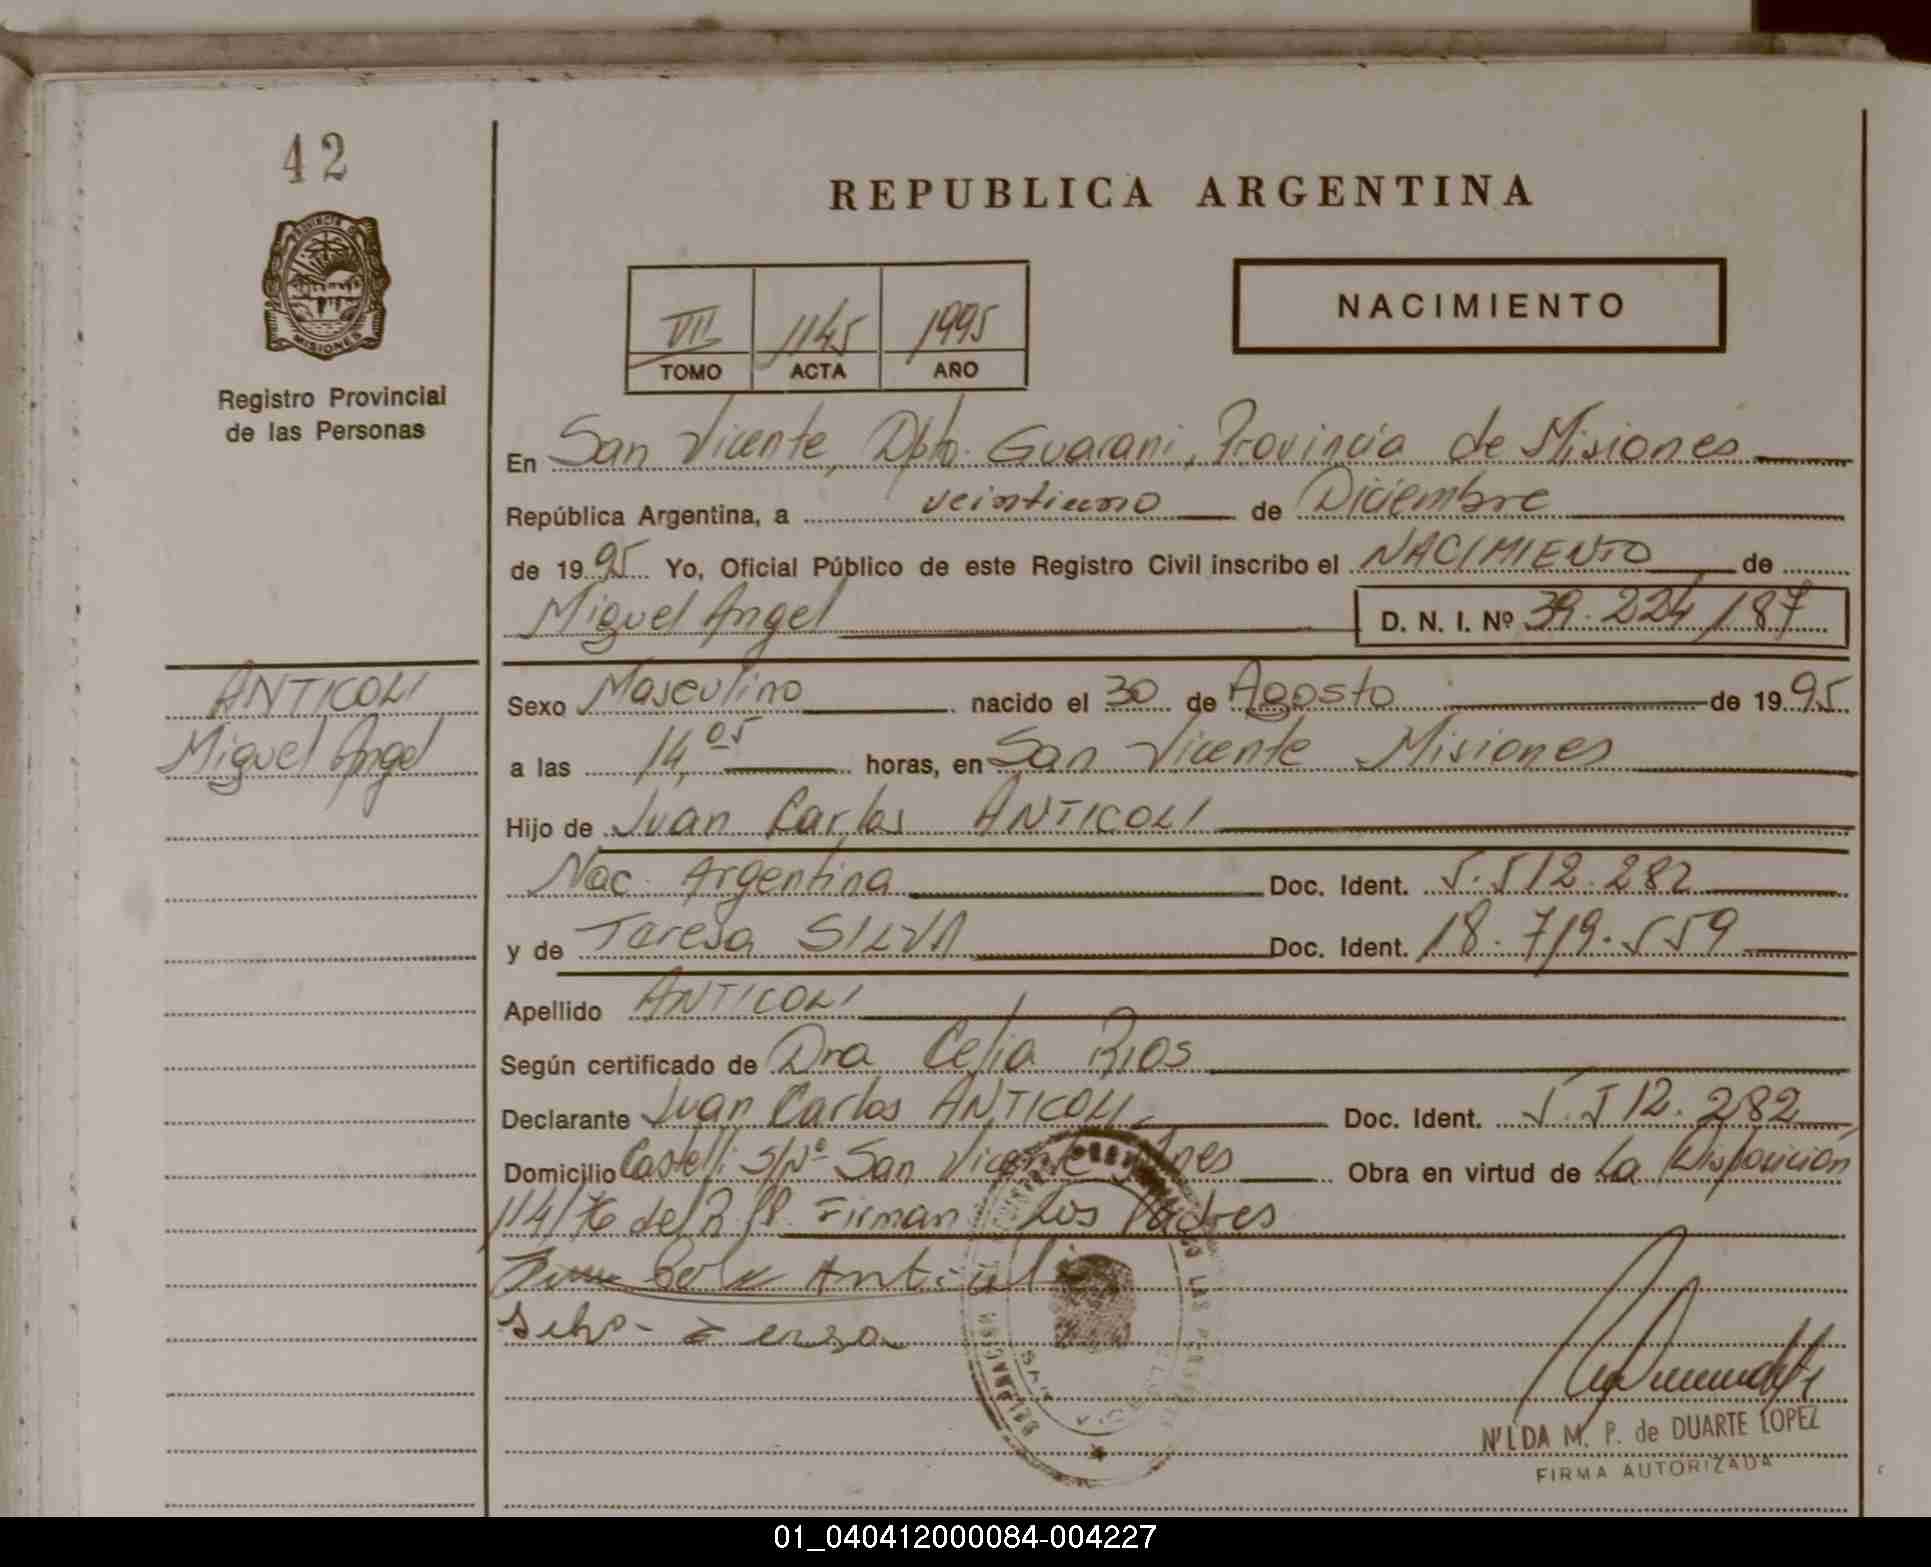 42
REPUBLICA ARGENTINA
PROVINCIA DE
MISIONES
Registro Provincial
de las Personas
NACIMIENTO
VII 1145 1995
TOMO ACTA AÑO
En San Vicente, Dpto. Guarani, Provincia de Misiones
República Argentina, a veintiuno de Diciembre
de 1995 Yo, Oficial Público de este Registro Civil inscribo el NACIMIENTO de
Miguel Angel D. N. I. Nº 39.224/187
ANTICOLI
Miguel Angel
Sexo Masculino nacido el 30 de Agosto de 1995
a las 14,05 horas, en San Vicente Misiones
Hijo de Juan Carlos ANTICOLI
Nac. Argentina Doc. Ident. 5.512.282
y de Teresa SILVA Doc. Ident. 18.719.559
Apellido ANTICOLI
Según certificado de Dra Celia Rios
Declarante Juan Carlos ANTICOLI Doc. Ident. 5.512.282
Domicilio Castelli S/Nº San Vicente Mnes Obra en virtud de La Disposición
114/76 del R.P. Firman Los Padres
Anticoli
NILDA M. P. de DUARTE LOPEZ
FIRMA AUTORIZADA
01_040412000084-004227